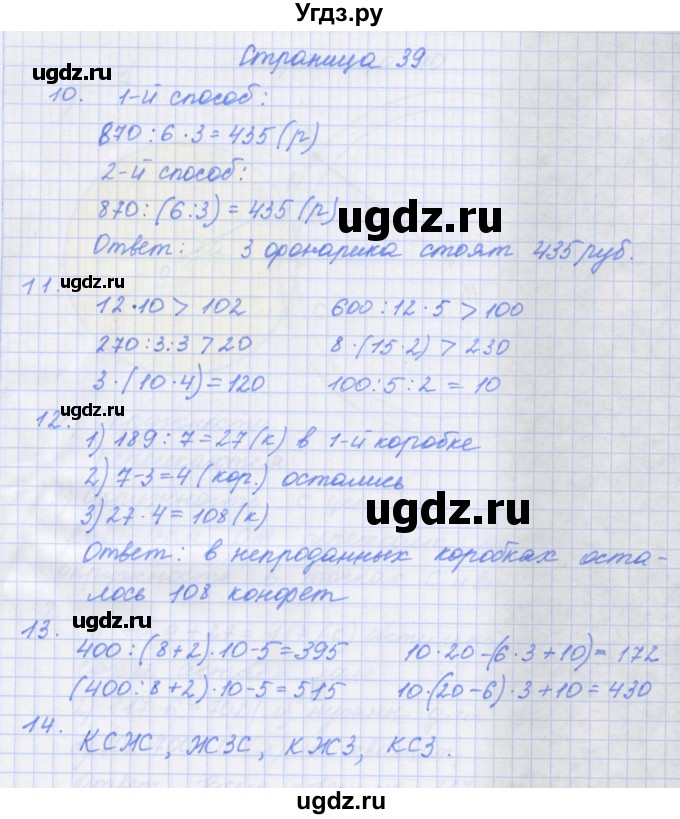 Угдз.ру
Страница 39
ugdz.ru
10. 1-й способ:
870:6·3=435(р)
2-й способ:
ugdz.ru
870:(6:3)=435(р)
ugdz.ru
Ответ: 3 фонарика стоят 435 руб.
11.
ugdz.ru
12·10>102 600:12·5>100
270:3:3>20 8·(15·2)>230
3·(10·4)=120 100:5:2=10
12.
ugdz.ru
1) 189:7=27(к) в 1-й коробке
2) 7-3=4(кор.) остались
ugdz.ru
3) 27·4=108(к)
Ответ: в непроданных коробках оста-
лось 108 конфет
13.
ugdz.ru
400:(8+2)·10-5=395 10·20-(6·3+10)=172
(400:8+2)·10-5=515 10·(20-6)·3+10=430
14.
КСЖС, ЖЗС, КЖЗ, КСЗ.
ugdz.ru
ugdz.ru